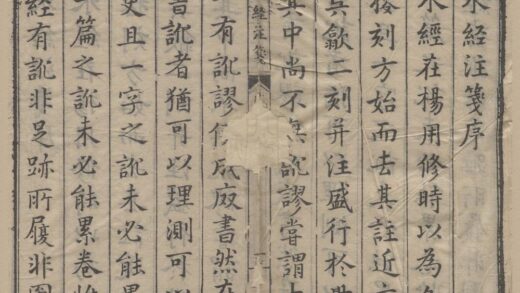 水經注箋序
水經在楊用修時以為
撥刻方始而去其註近
吳歙二刻并注盛行於
其中尚不無訛謬嘗謂
經注箋
有訛謬 成廢書然
訛者猶可以理測可
史且一字之訛未必能
篇之訛未必能累卷
經有訛非足跡所履非圖